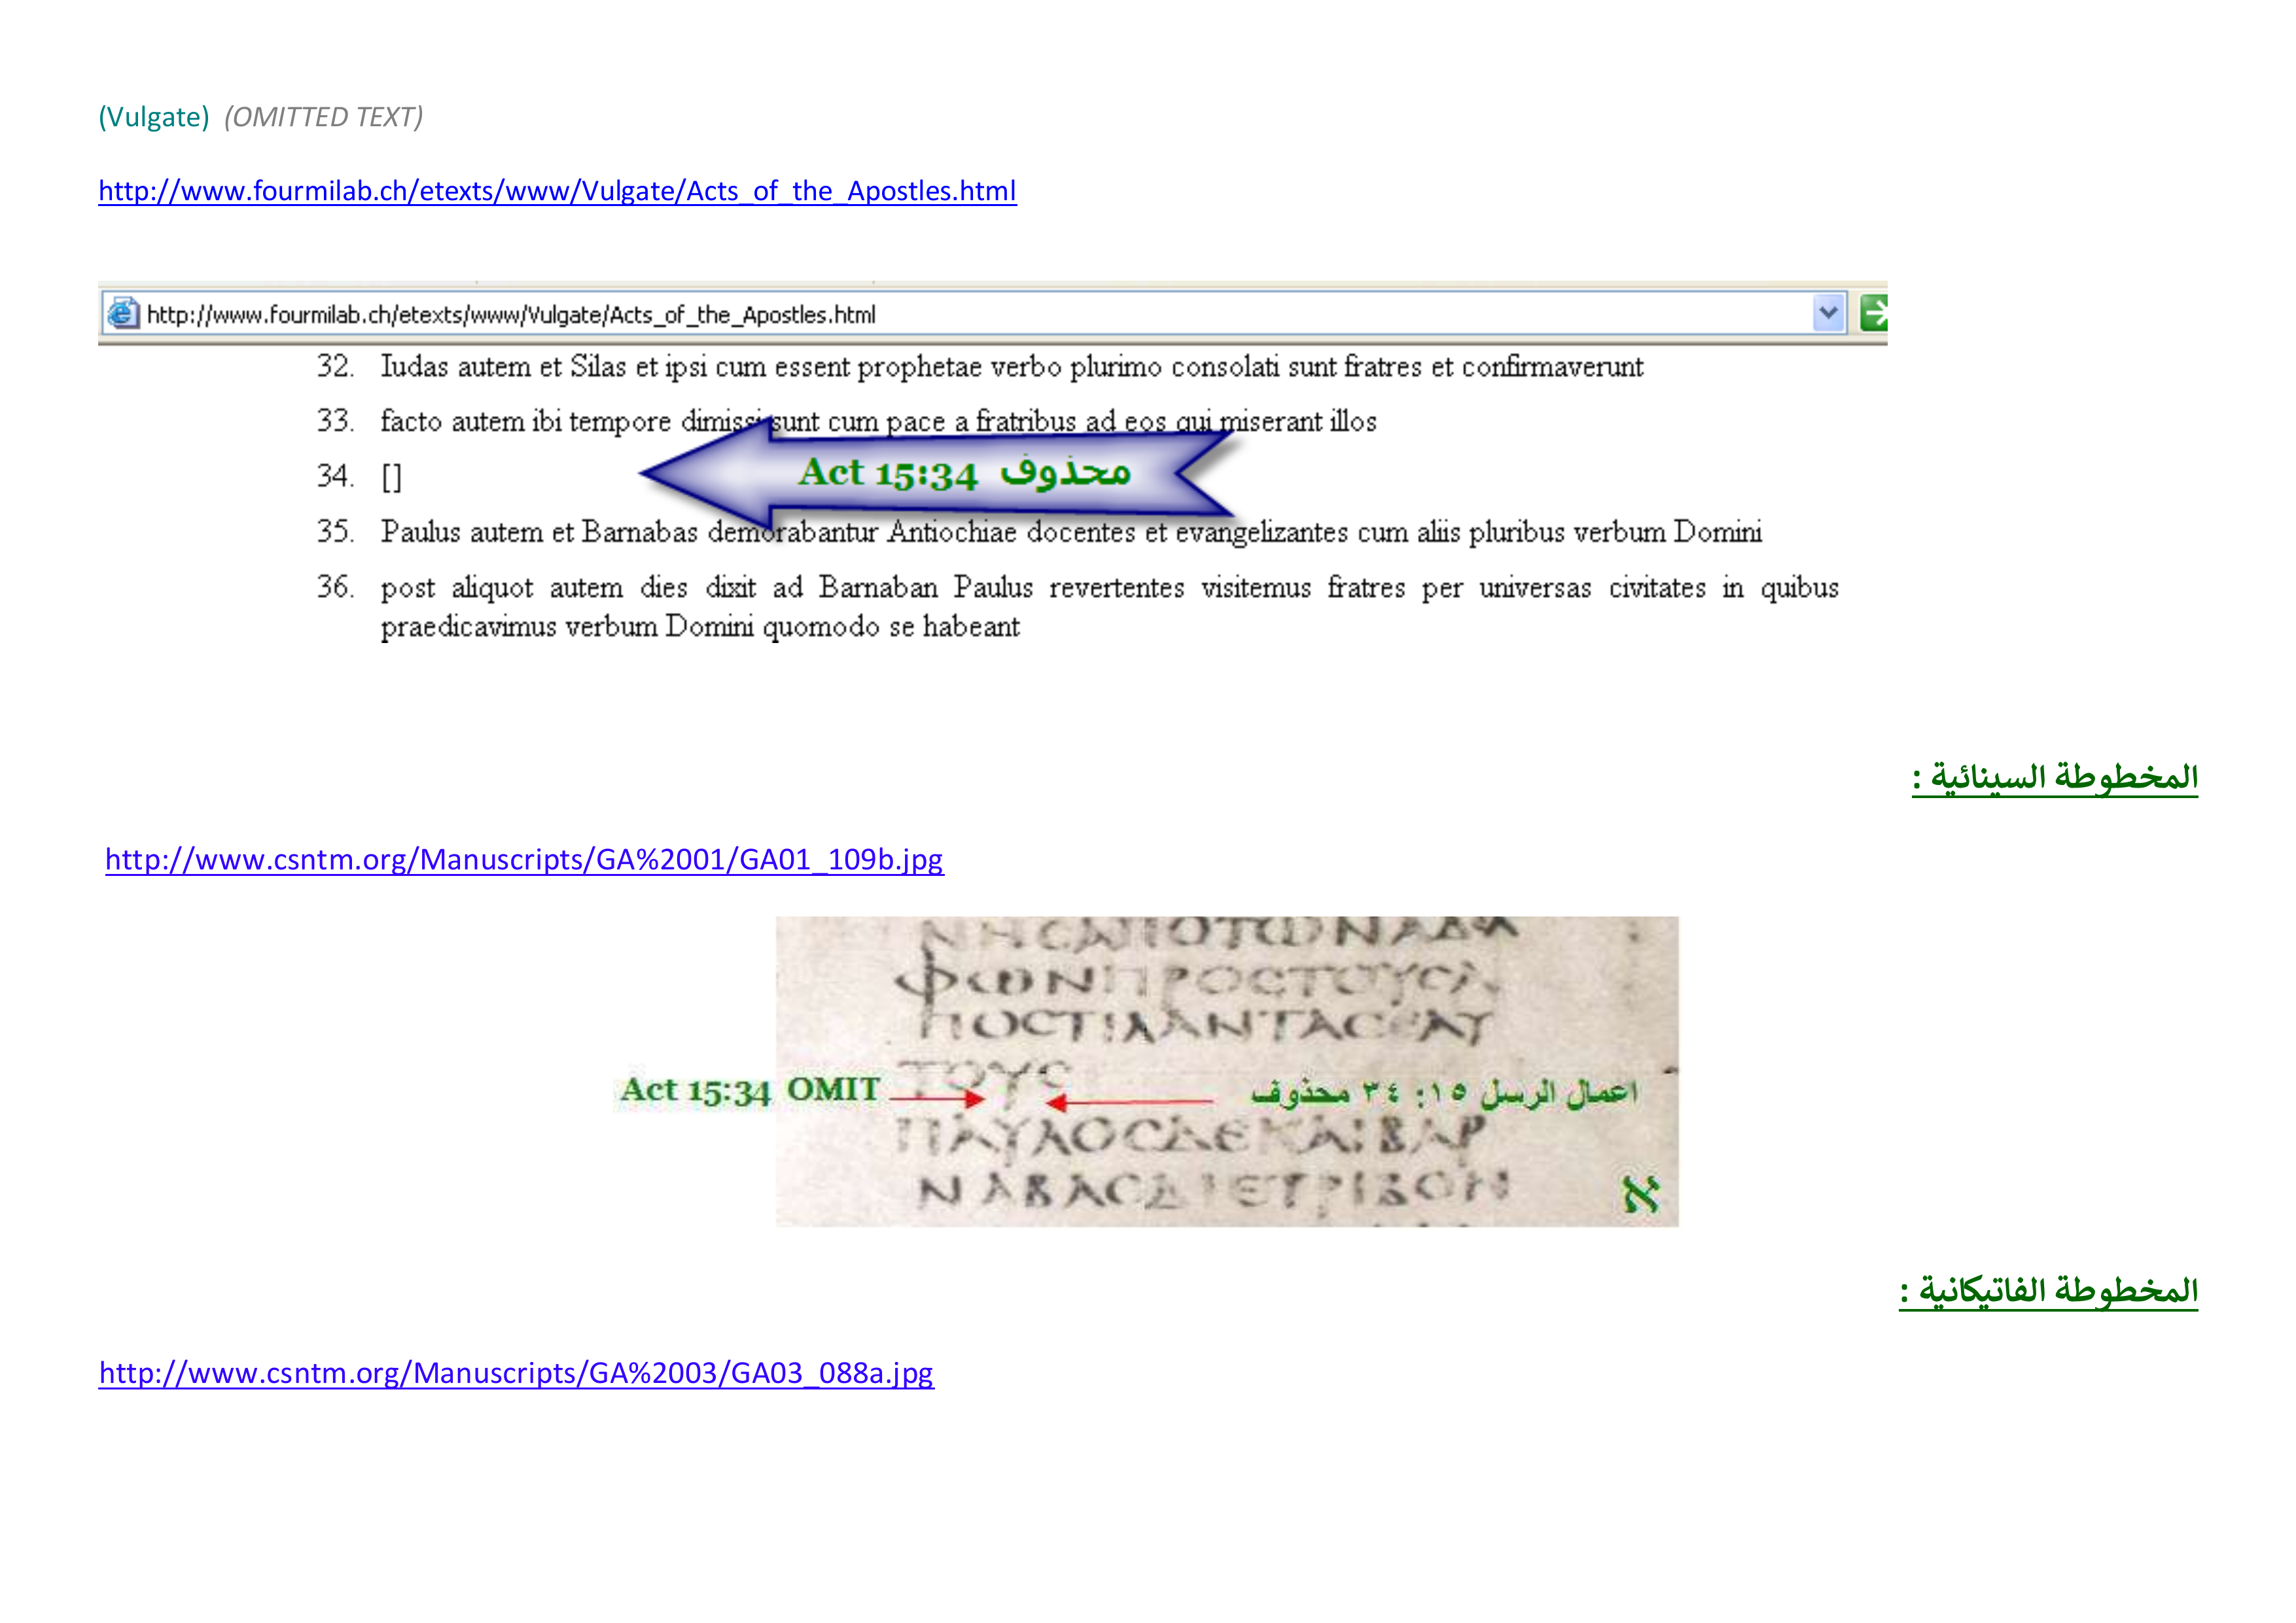 (Vulgate) (OMITTED TEXT)
http://www.fourmilab.ch/etexts/www/Vulgate/Acts_of_the_Apostles.html
http://www.fourmilab.ch/etexts/www/Vulgate/Acts_of_the_Apostles.html
32. Iudas autem et Silas et ipsi cum essent prophetae verbo plurimo consolati sunt fratres et confirmaverunt
33. facto autem ibi tempore dimissi sunt cum pace a fratribus ad eos qui miserant illos
34. []
Act 15:34 محذوف
35. Paulus autem et Barnabas demorabantur Antiochiae docentes et evangelizantes cum aliis pluribus verbum Domini
36. post aliquot autem dies dixit ad Barnaban Paulus revertentes visitemus fratres per universas civitates in quibus
praedicavimus verbum Domini quomodo se habeant
المخطوطة السينائية :
http://www.csntm.org/Manuscripts/GA%2001/GA01_109b.jpg
ΝΗСΑΠΟΤΩΝΑΔΕΛ
ΦΩΝΠΡΟСΤΟΥСΑ
ΠΟСΤΙΛΑΝΤΑСΕΑΥ
ΤΟΥС
Act 15:34 OMIT
اعمال الرسل ١٥: ٣٤ محذوف
ΠΑΥΛΟСΔΕΚΑΙΒΑΡ
ΝΑΒΑСΔΙΕΤΡΙΒΟΝ
א
المخطوطة الفاتيكانية :
http://www.csntm.org/Manuscripts/GA%2003/GA03_088a.jpg